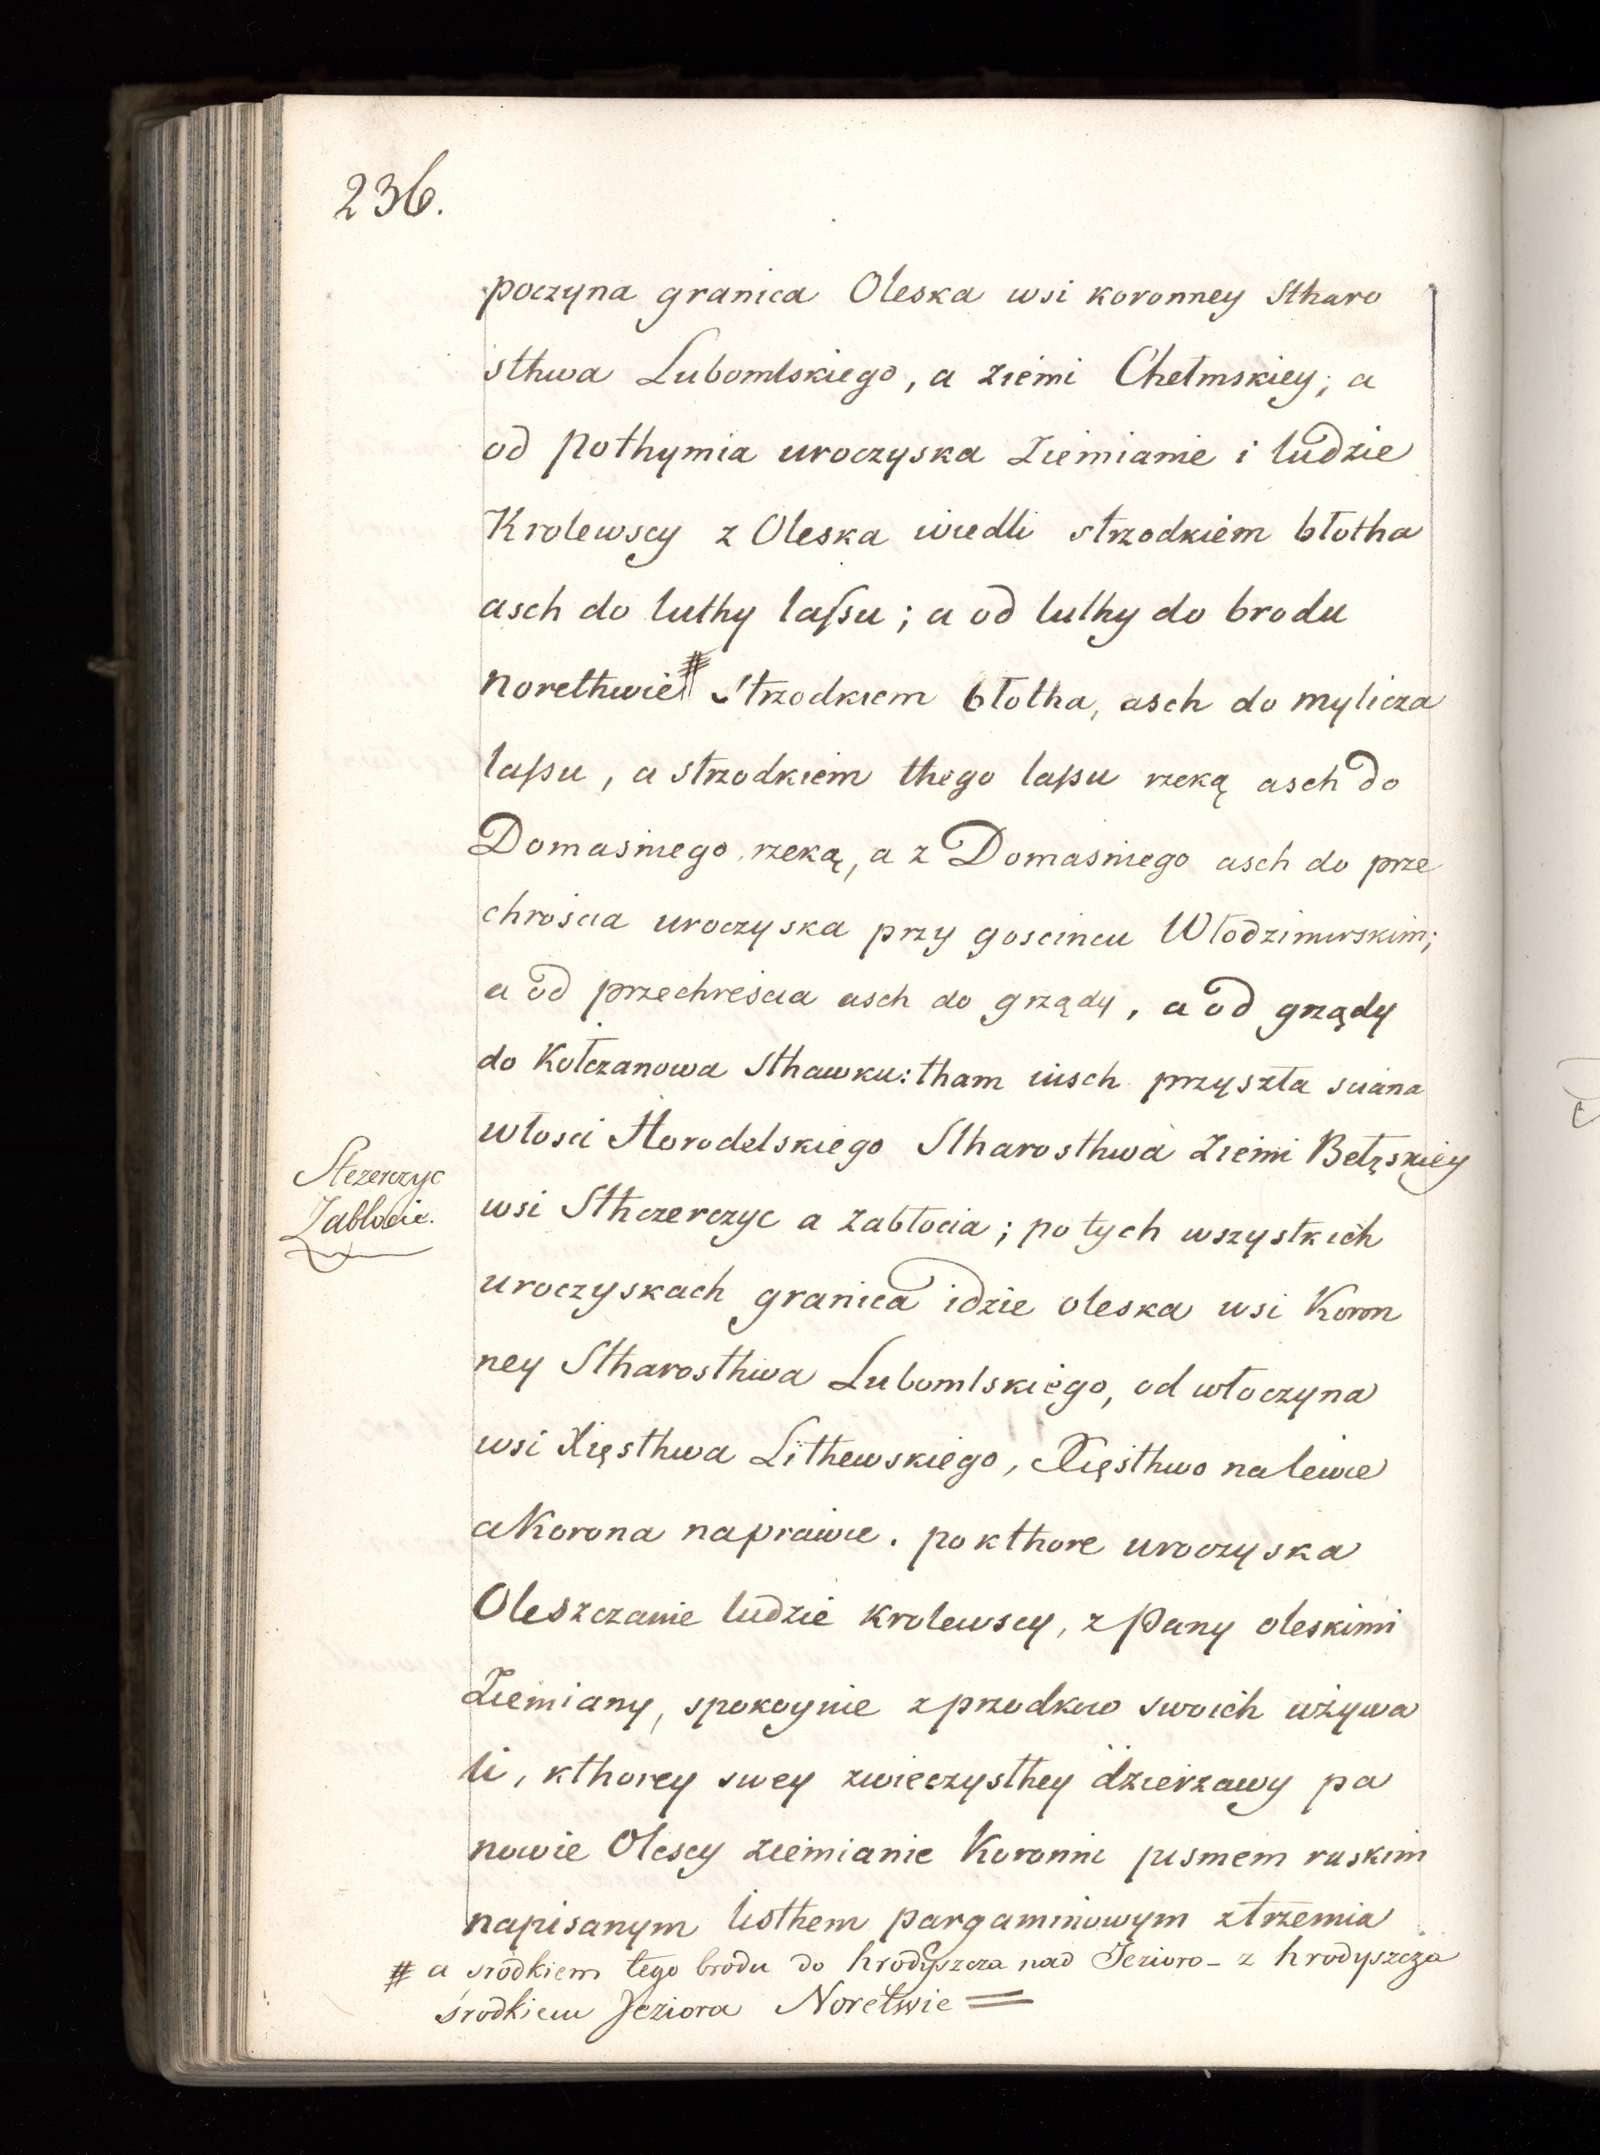 236.
poczyna granica Oleska wsi koronney Stharo
sthwa Lubomlskiego, a ziemi Chełmskiey; a
od pothymia uroczyska Ziemianie i ludzie
Krolewscy z Oleska wiedli strzodkiem błotha
asch do luthy lassu; a od luthy do brodu
norethwie # strzodkiem błotha, asch do mylicza
lassu, a strzodkiem thego lassu rzeką asch do
Domasniego rzeką, a z Domasniego asch do prze
chrościa uroczyska przy goscincu Włodzimirskim;
a od przechreścia asch do grządy, a od grządy
do Kołczanowa Sthawku: tham iusch przyszła sciana
włosci Horodelskiego Stharosthwa Ziemi Bełzskiey
Stezerczyc
Zablocie.
wsi Sthczerczyc a Zabłocia; po tych wszystkich
uroczyskach granica idzie oleska wsi Koron
ney Stharosthwa Lubomlskiego, od włoczyna
wsi Xięsthwa Lithewskiego, Xięsthwo na lewie
a Korona na prawie. po kthore uroczyska
Oleszczanie ludzie krolewscy, z Pany oleskimi
Ziemiany, spokoynie z przodkow swoich używa
li, kthorey swey zwieczysthey dzierzawy pa
nowie Olescy ziemianie Koronni pismem ruskim
napisanym listhem pargaminowym z trzemia
# a srodkiem tego brodu do hrodyszcza nad Jezioro - z hrodyszcza
środkiem Jeziora Noretwie =